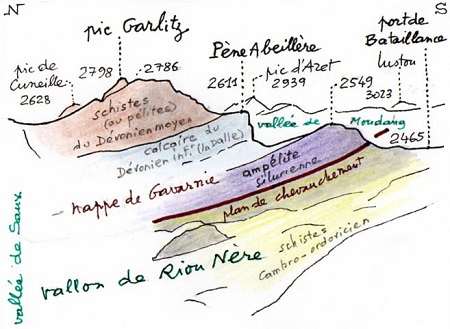 N
S
pic Garlitz
port de
Bataillance
Pène Abeillère
pic de
Cuneille
2628
2798
2786
2611
pic d'Azet
2939
2549
Lustou
3023
2465
schistes
(ou pélites)
du Dévonien moyen
vallée de Moudang
calcaire du
Dévonien inf. (la Dalle)
nappe de Gavarnie
ampélite
silurienne
plan de chevauchement
schistes
Cambro-ordovicien
vallon de Riou Nère
vallée de Saux